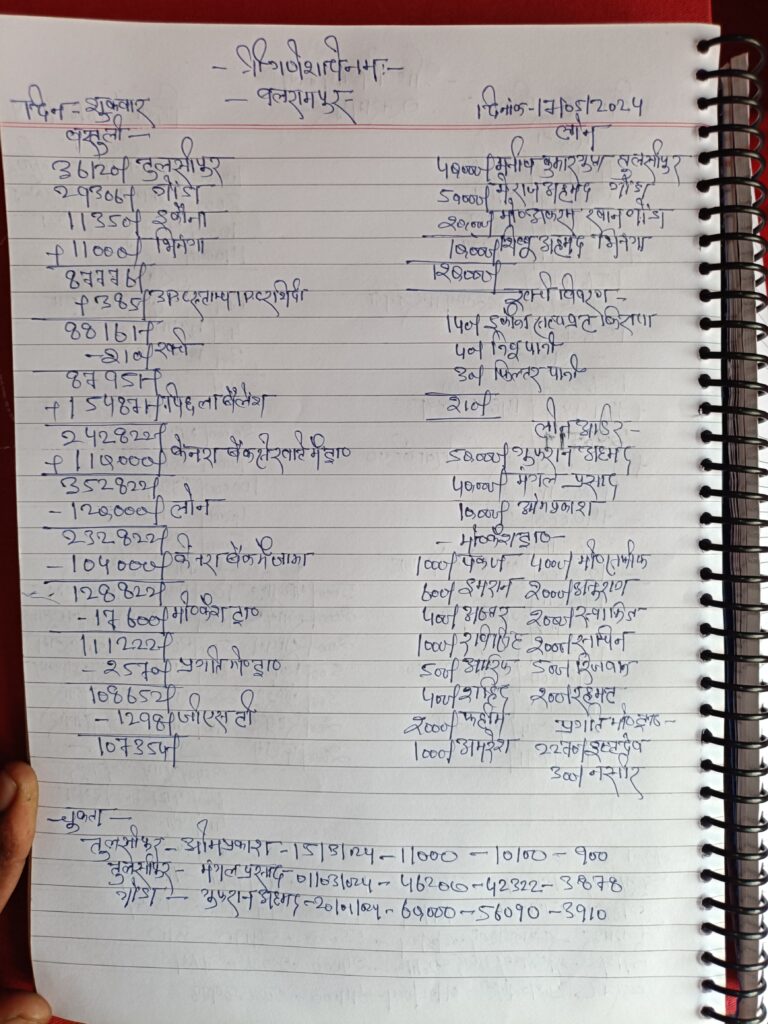 - श्री गणेशाय नमः -
दिन - शुक्रवार - बलरामपुर - दिनांक - 17/05/2024
वसूली -
36120/ तुलसीपुर
29306/ गोंडा
11350/ इकौना
+ 11000/ भिनगा
87776/
+ 385/
88161/
- 210/ खर्चा
87951/
+ 154871/ पिछला बैलेंस
242822/
+ 110000/ केनरा बैंक
352822/
- 120,000/ लोन
232822/
- 104000/ केनरा बैंक में जमा
128822/
- 17600/
111222/
- 2570/
108652/
- 1298/ जीएसटी
107354/
लोन
40000/ कुमार गुप्ता तुलसीपुर
50000/ मेराज अहमद गोंडा
20,000/ गोंडा
10,000/ अहमद भिनगा
120,000/
खर्चा विवरण -
140/ इकौना किराया
40/ पानी
30/ फिल्टर पानी
210/
लोन आर्डर :-
50,000/ गुफरान अहमद
40,000/ मंगल प्रसाद
10,000/ ओमप्रकाश
1000/ पंकज 400/
600/ इमरान 2000/
400/ 2000/
1000/ 2000/
500/ 500/ रिजवान
400/ शाहिद 2000/ रहमत
2000/ फहीम
1000/ अमरेश 2270/
300/ नसीर
चुकता -
तुलसीपुर - ओमप्रकाश - 15/3/024 - 11000 - 10100 - 900
तुलसीपुर - मंगल प्रसाद 01/03/024 - 46200 - 42322 - 3878
गोंडा - गुफरान अहमद - 20/01/024 - 60,000 - 56090 - 3910